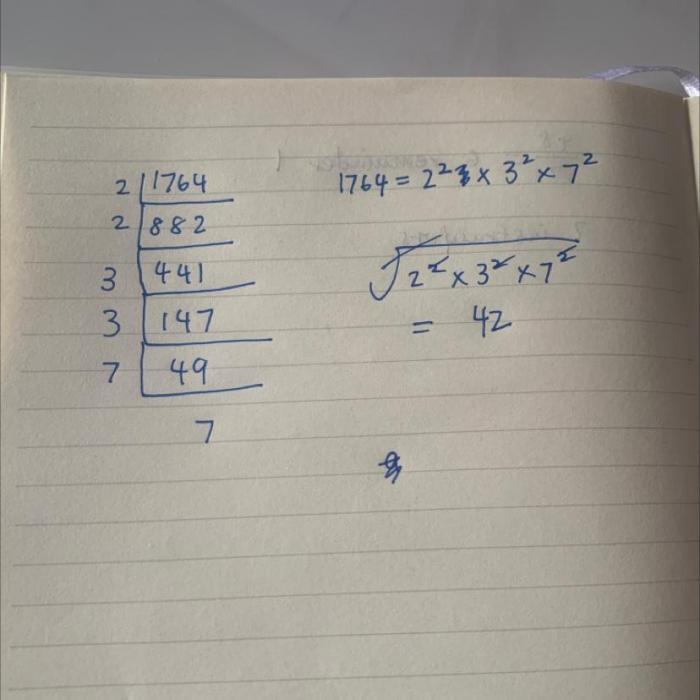 2 | 1764
2 | 882
3 | 441
3 | 147
7 | 49
7
1764 = 2² × 3² × 7²
√2² × 3² × 7²
= 42